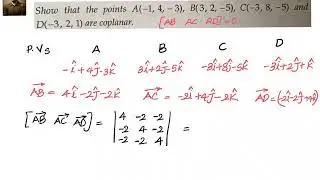 Show that the points A(−1, 4, −3), B(3, 2, −5), C(−3, 8, −5) and
D(−3, 2, 1) are coplanar. [AB AC AD]=0
P.Vs A B C D
-i+4j-3k 3i+2j-5k -3i+8j-5k -3i+2j+k
AB = 4i-2j-2k AC = -2i+4j-2k AD=(-2i-2j+4k)
[AB AC AD] = | 4 -2 -2 | =
| -2 4 -2 |
| -2 -2 4 |